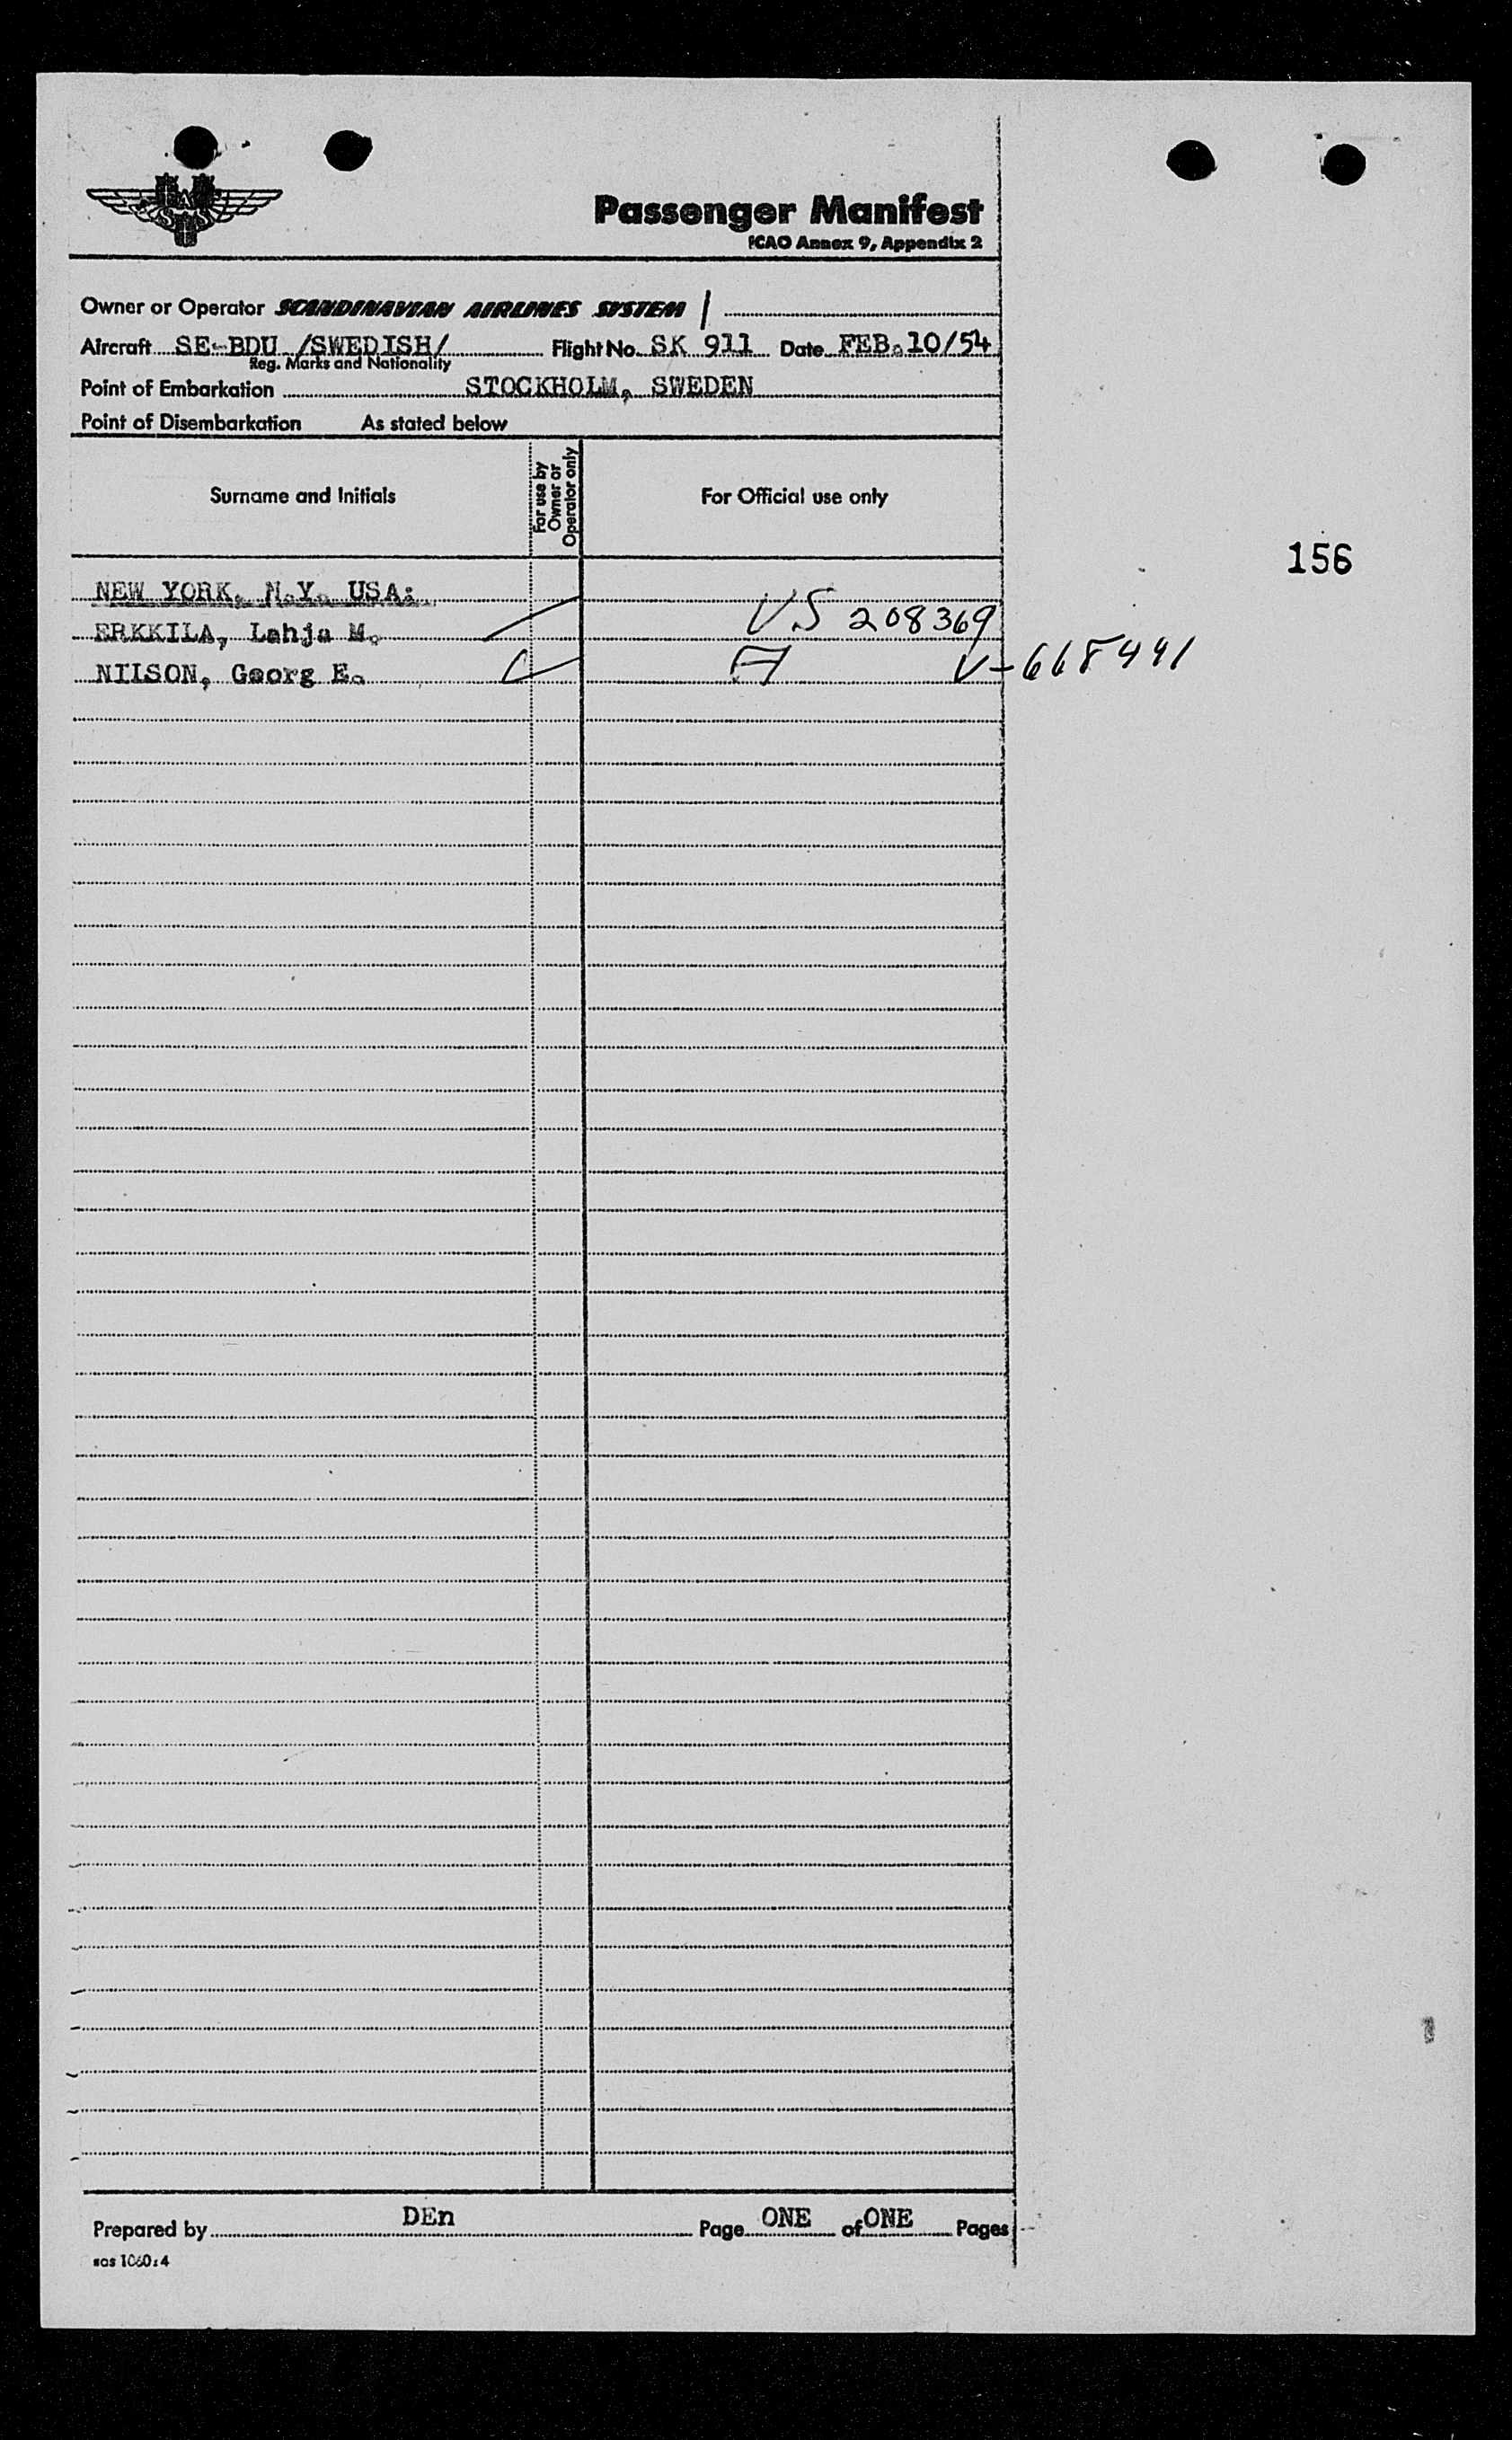 SAS
Passenger Manifest
ICAO Annex 9, Appendix 2
Owner or Operator SCANDINAVIAN AIRLINES SYSTEM
Aircraft SE-BDU /SWEDISH/ Flight No. SK 911 Date FEB.10/54
Reg. Marks and Nationality
Point of Embarkation STOCKHOLM, SWEDEN
Point of Disembarkation As stated below
Surname and Initials
For use by Owner or Operator only
For Official use only
156
NEW YORK, N.Y. USA:
ERKKILA, Lahja M. VS 208369
NILSON, Georg E. A V-668491
Prepared by DEn Page ONE of ONE Pages
sas 1060:4